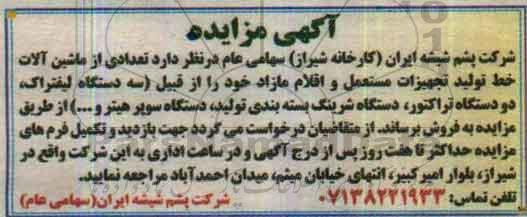 آگهی مزایده
شرکت پشم شیشه ایران (کارخانه شیراز) سهامی عام درنظر دارد تعدادی از ماشین آلات
خط تولید تجهیزات مستعمل و اقلام مازاد خود را از قبیل (سه دستگاه لیفتراک،
دو دستگاه تراکتور، دستگاه شرینگ بسته بندی تولید، دستگاه سوپر هیتر و...) از طریق
مزایده به فروش برساند. از متقاضیان درخواست می گردد جهت بازدید و تکمیل فرم های
مزایده حداکثر تا هفت روز پس از درج آگهی و در ساعت اداری به این شرکت واقع در
شیراز، بلوار امیرکبیر، انتهای خیابان میثم، میدان احمدآباد مراجعه نمایید.
تلفن تماس: ۰۷۱۳۸۲۲۱۹۳۳ شرکت پشم شیشه ایران(سهامی عام)